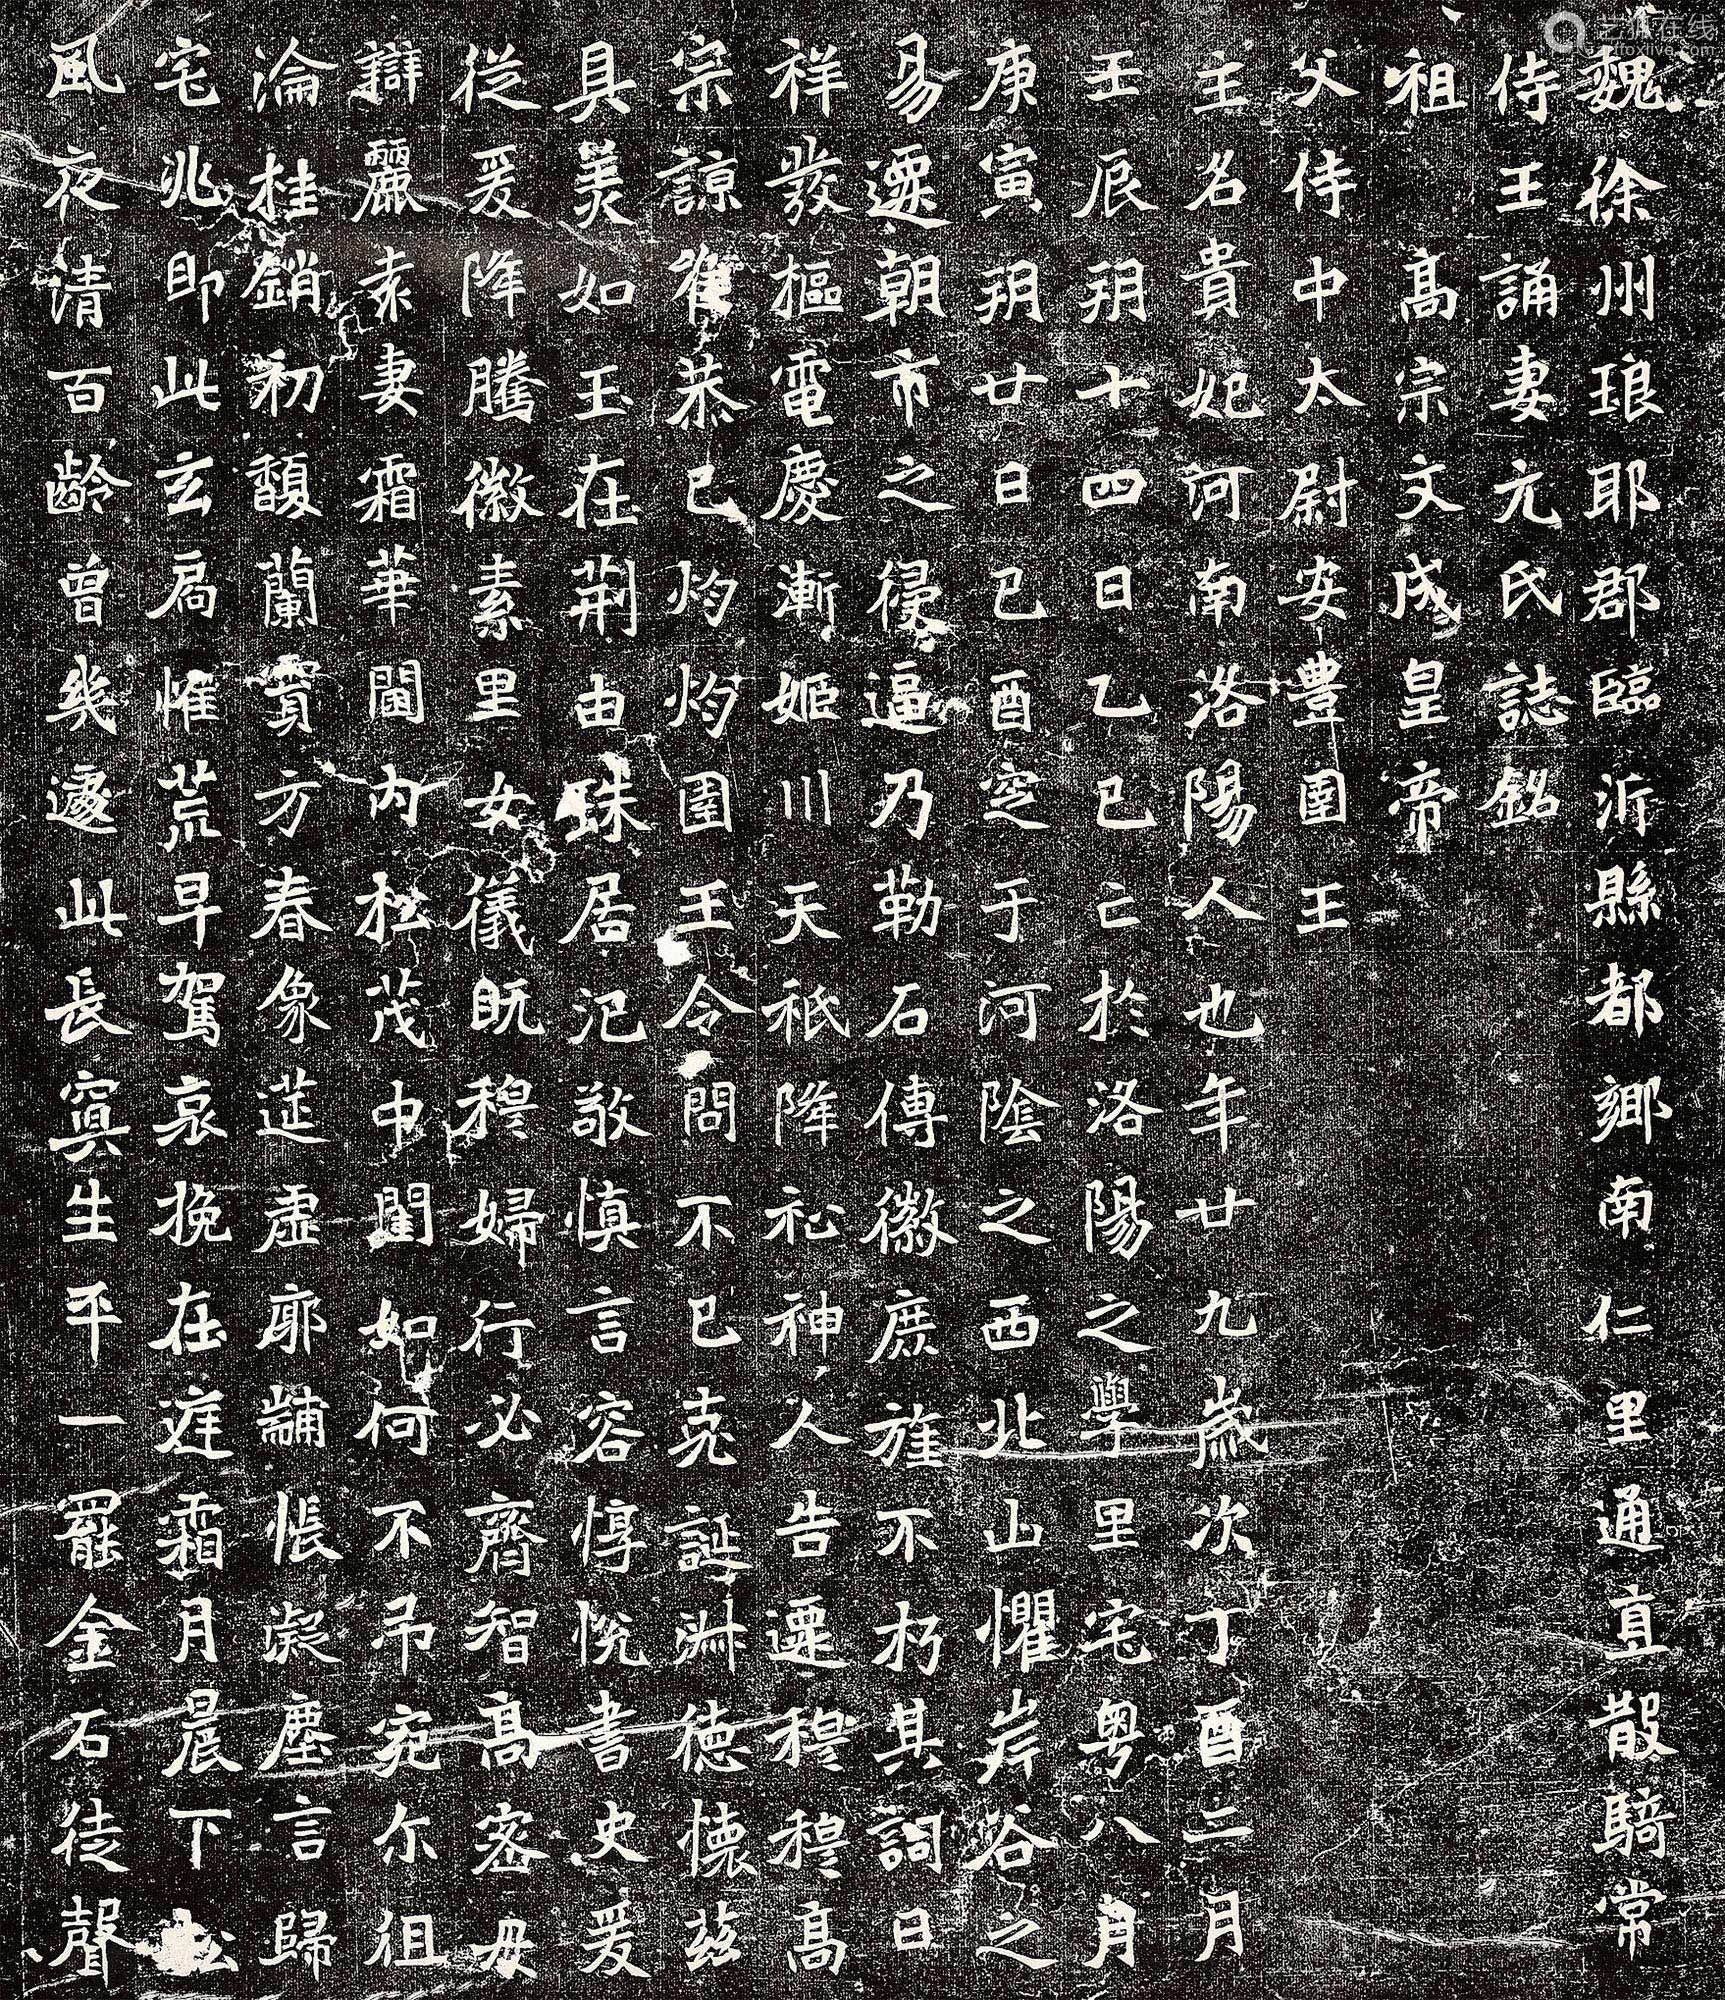 魏徐州琅耶郡臨沂縣都鄉南仁里通直散騎常
侍王誦妻元氏誌銘
祖高宗文成皇帝
父侍中太尉安豐圉王
主名貴妃河南洛陽人也年廿九歲次丁酉二月
壬辰玥十四日乙巳亡於洛陽之學里宅粵八月
庚寅玥廿日己酉窆于河陰之西北山懼岸谷之
易遷朝市之侵逼乃勒石傳徽庶旌不朽其詞曰
祥發樞電慶漸姬川天祇降祉神人告遷穆穆高
宗諒惟恭己灼灼圉王令問不已克誕淋德懷茲
具美如玉在荊由珠居氾敬慎言容惇悅書史爰
從爰降騰徽素里女儀既穆婦行必齊智高密母
辯麗袁妻霜華閫内松茂中閨如何不弔宛尔徂
淪桂銷初馥蘭賁方春象筵虛廓黼悵凝塵言歸
宅兆即此玄扃惟荒早駕哀挽在庭霜月晨下松
風夜清百齡曾幾遽此長寘生平一罷金石徒聲
艺狐在线
artfoxlive.com